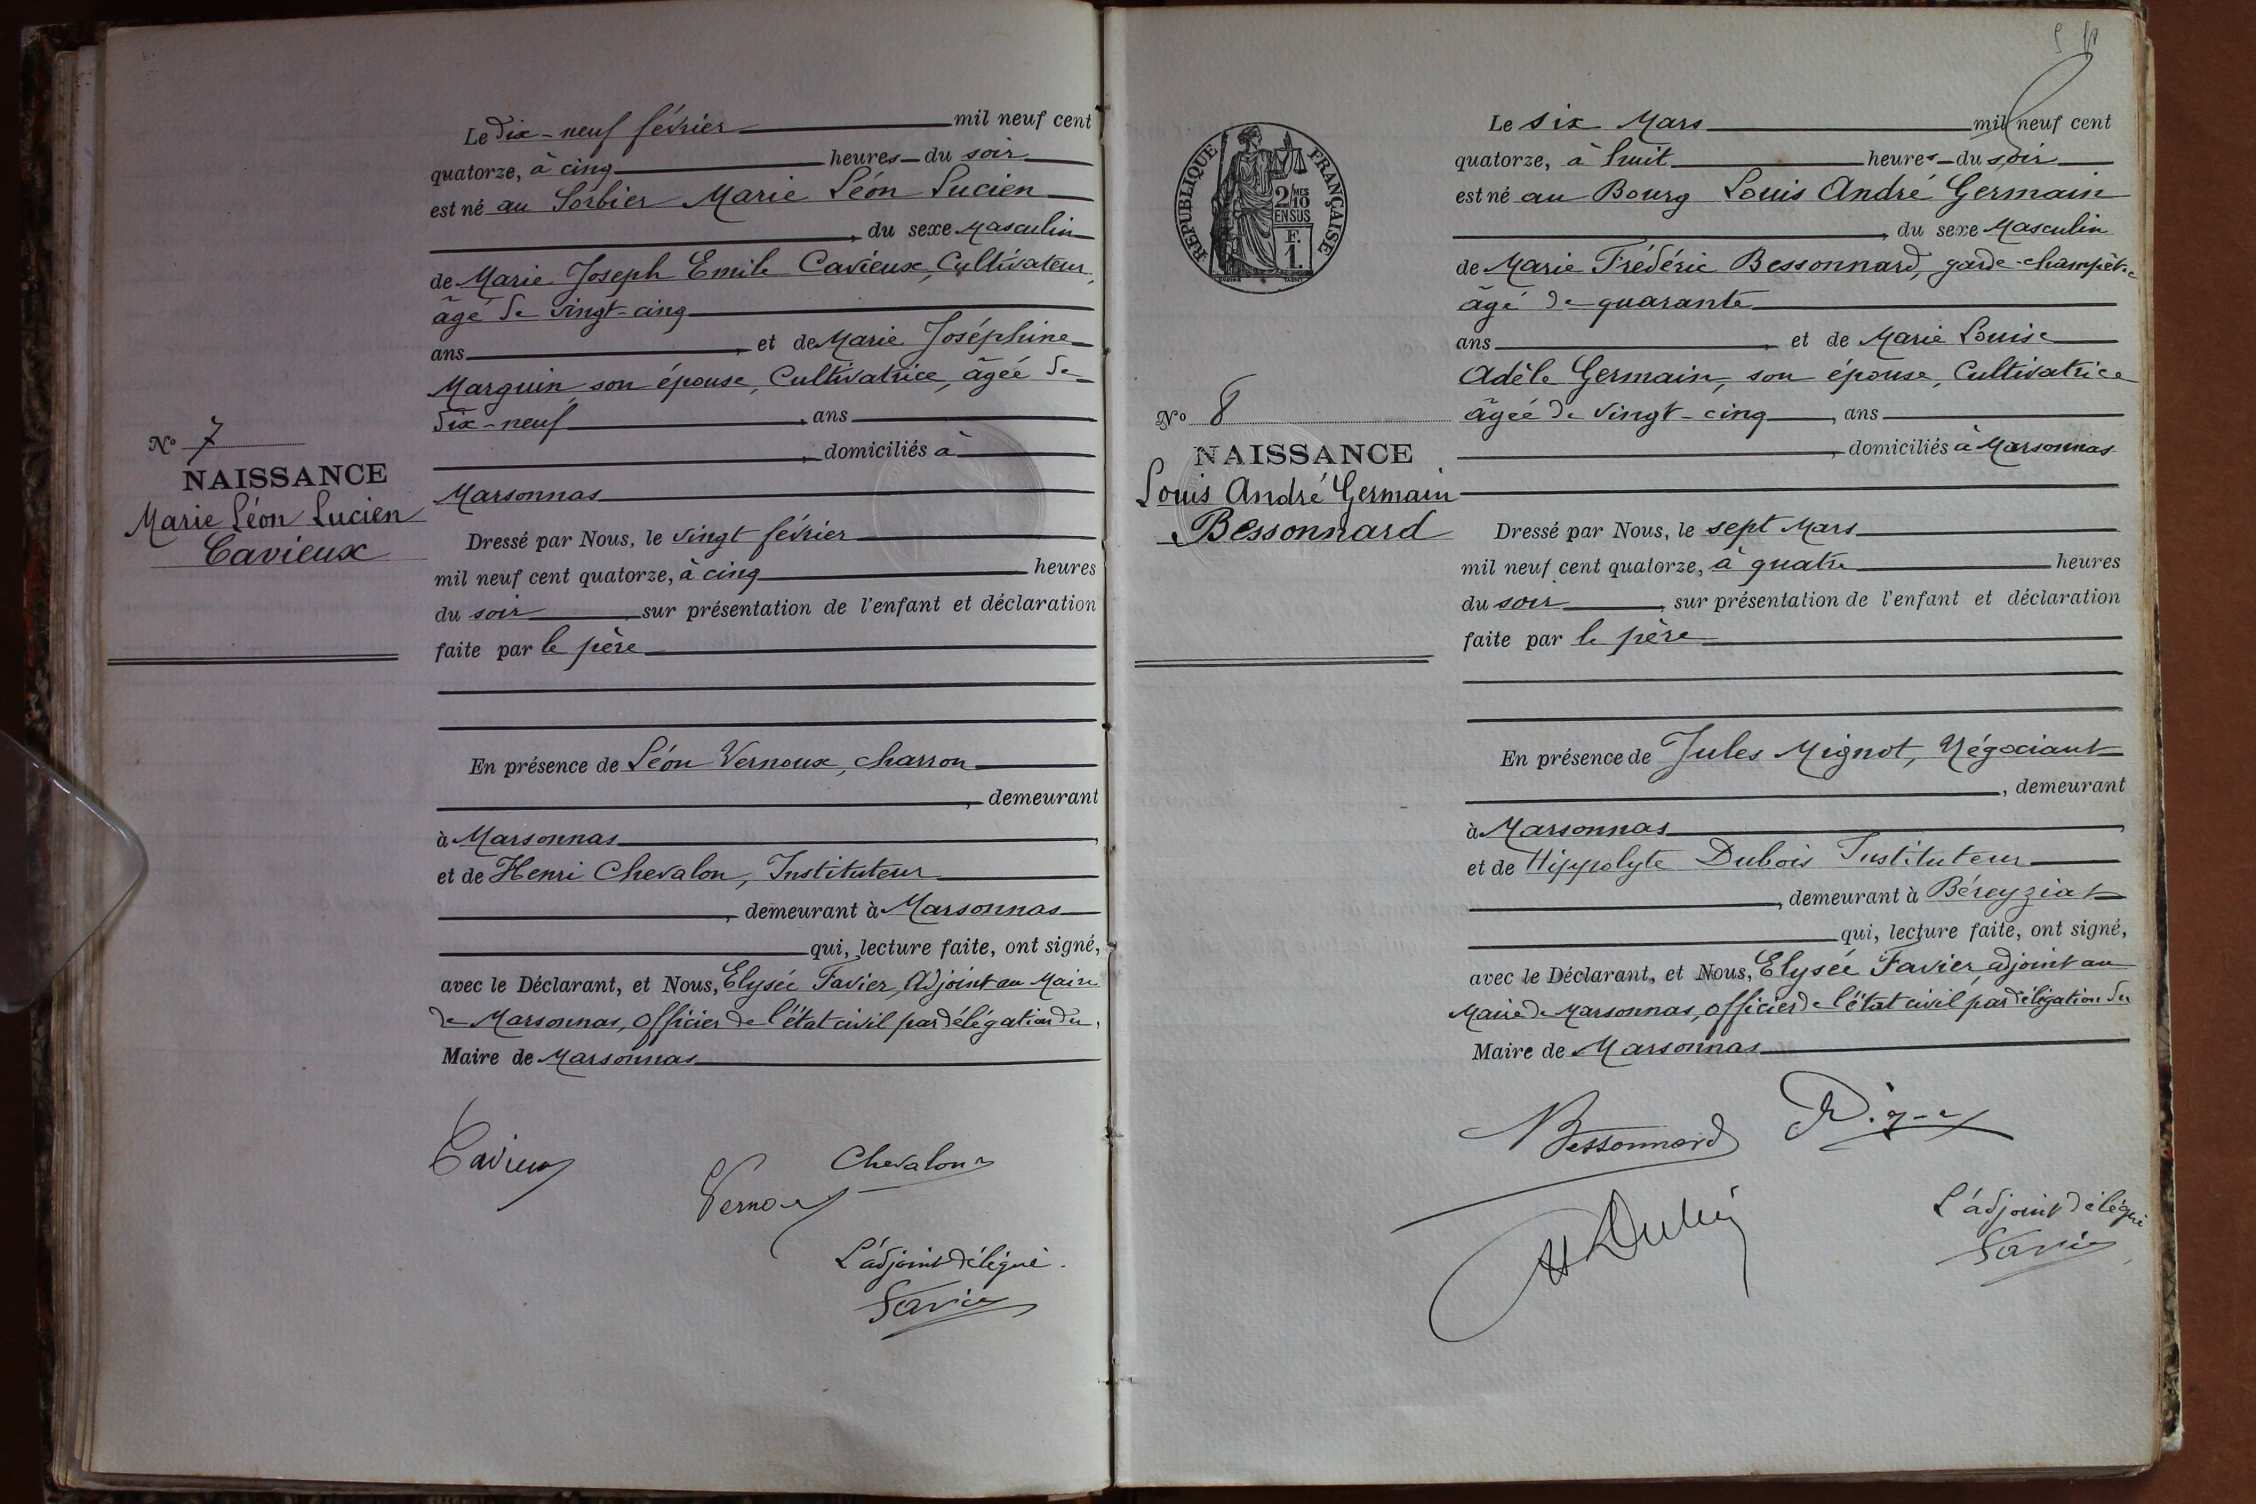 Le dix-neuf février mil neuf cent
quatorze, à cinq heures du soir
est né au Sorbier Marie Léon Lucien
, du sexe Masculin
de Marie Joseph Emile Cavieux, Cultivateur,
âgé de vingt-cinq
ans, et de Marie Joséphine
Marguin, son épouse, Cultivatrice, âgée de
dix-neuf, ans
, domiciliés à
Marsonnas
No 7
NAISSANCE
Marie Léon Lucien
Cavieux
Dressé par Nous, le vingt février
mil neuf cent quatorze, à cinq heures
du soir, sur présentation de l'enfant et déclaration
faite par le père
En présence de Léon Vernoux, charron
, demeurant
à Marsonnas,
et de Henri Chevalon, Instituteur
, demeurant à Marsonnas
qui, lecture faite, ont signé,
avec le Déclarant, et Nous, Elysée Favier, Adjoint au Maire
de Marsonnas, officier de l'état civil par délégation du,
Maire de Marsonnas
Cavieux
Chevalon
Vernoux
L'adjoint délégué.
Favier
Le six Mars mil neuf cent
quatorze, à huit heures du soir
est né au Bourg Louis André Germain
, du sexe Masculin
de Marie Frédéric Bessonnard, garde-champêtre
âgé de quarante
ans, et de Marie Louise
Adèle Germain, son épouse, Cultivatrice
âgée de vingt-cinq, ans
, domiciliés à Marsonnas
RÉPUBLIQUE FRANÇAISE
2/10MES
EN SUS
F.
1.
No 8
NAISSANCE
Louis André Germain
Bessonnard
Dressé par Nous, le sept Mars
mil neuf cent quatorze, à quatre heures
du soir, sur présentation de l'enfant et déclaration
faite par le père
En présence de Jules Mignot, Négociant
, demeurant
à Marsonnas,
et de Hippolyte Dubois Instituteur
, demeurant à Béreyziat
qui, lecture faite, ont signé,
avec le Déclarant, et Nous, Elysée Favier, adjoint au
Maire de Marsonnas, officier de l'état civil par délégation du
Maire de Marsonnas
Bessonnard
H Dubois
L'adjoint délégué
Favier